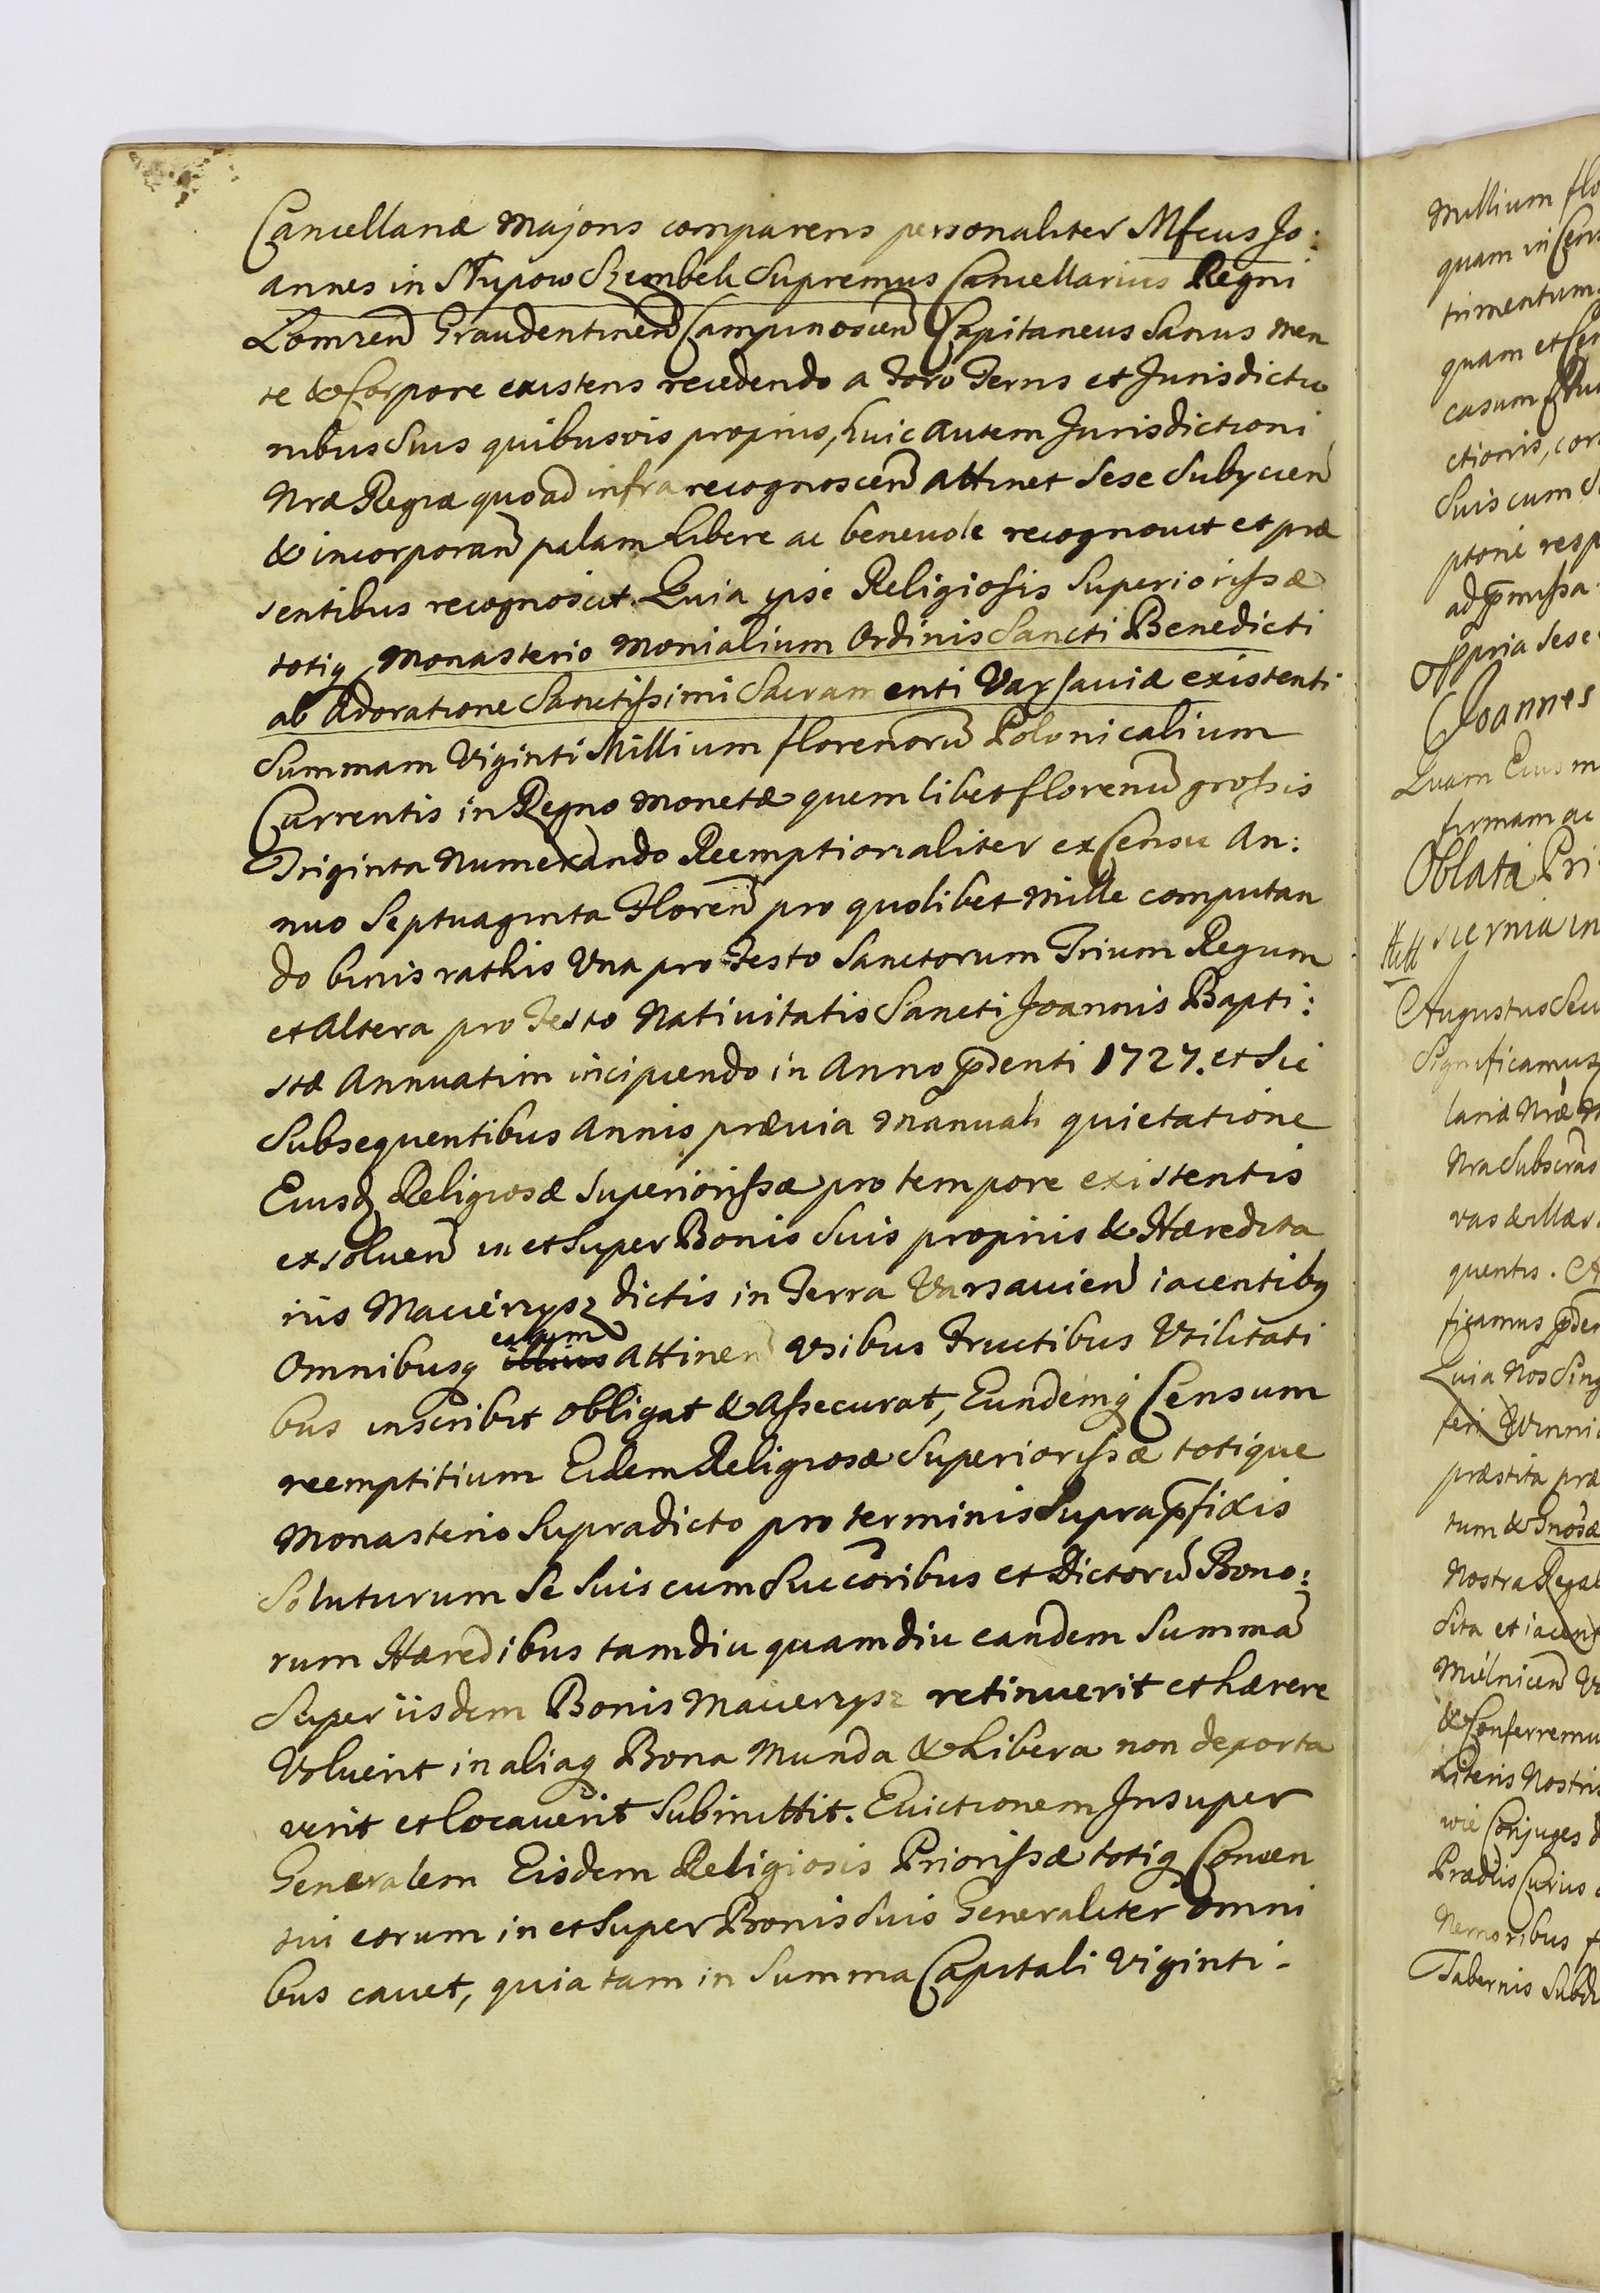 Cancellariæ Majoris comparens personaliter Mfcus Jo:
annes in Słupow Szembek Supremus Cancellarius Regni
Łomzen̄ Graudentinen̄ Campinoscien̄ Capitaneus Sanus men
te & Corpore existens recedendo a Foro Terris et Jurisdictio
nibus Suis quibusvis proprijs, huic autem Jurisdictioni
Nræ Regiæ quoad infra recognoscen̄ attinet Sese Subijcien̄
& incorporan̄ palam libere ac benevole recognovit et præ
sentibus recognoscit. Quia ipse Religiosis Superiorissæ
totiq, Monasterio Monialium Ordinis Sancti Benedicti
ab Adoratione Sanctissimi Sacramenti Varsaviæ existenti
Summam Viginti Millium florenorū Polonicalium
Currentis in Regno Monetæ quemlibet florenū grossis
Triginta Numerando Reemptionaliter ex Censu An:
nuo Septuaginta Floren̄ pro quolibet Mille computan
do binis rathis Una pro Festo Sanctorum Trium Regum
et Altera pro Festo Nativitatis Sancti Joannis Bapti:
stæ Annuatim incipiendo in Anno p̄denti 1727. et Sic
Subsequentibus Annis prævia Manuali quietatione
Eiusd Religiosæ Superiorissæ pro tempore existentis
exsoluen̄ in et Super Bonis Suis proprijs & Hæredita
rijs Macierzysz dictis in Terra Varsavien̄ iacentibq
Omnibusq illius eorum attinen̄ Usibus Fructibus Utilitati
bus inscribit obligat & assecurat, Eundemq Censum
reemptitium Eidem Religiosæ Superiorissæ totique
Monasterio Supradicto pro terminis Supra p̄fixis
Soluturum Se Suis cum Succōribus et Dictorū Bono:
rum Hæredibus tamdiu quamdiu eandem Summā
Super iisdem Bonis Macierzysz retinuerit et hærere
Voluerit in aliaq Bona Munda & Libera non deporta
verit et locaverit Submittit. Evictionem Insuper
Generalem Eisdem Religiosis Priorissæ totiq Conven
tui eorum in et Super Bonis Suis Generaliter Omni
bus cavet, quia tam in Summa Capitali Viginti-
Millium flo
quam in Cens
trimentum
quam et Cen
casum
ctionis, cor
Suis cum S
ptorie resp
ad p̄missa
ppria Sese
Joannes
Quam Eius m
firmam ac
Oblata Pri
Augustus Secu
Significamus
lariæ Nræ M
Nra Subscras
quentis. A
ficamus p̄den
Quia Nos Sing
præstita præ
Nostra Regal
Sita et iacent
Mielnicen̄
& Conferremu
Literis Nostris
wie Conjuges
Prædiis Curiis
Nemoribus f
Tabernis Subd